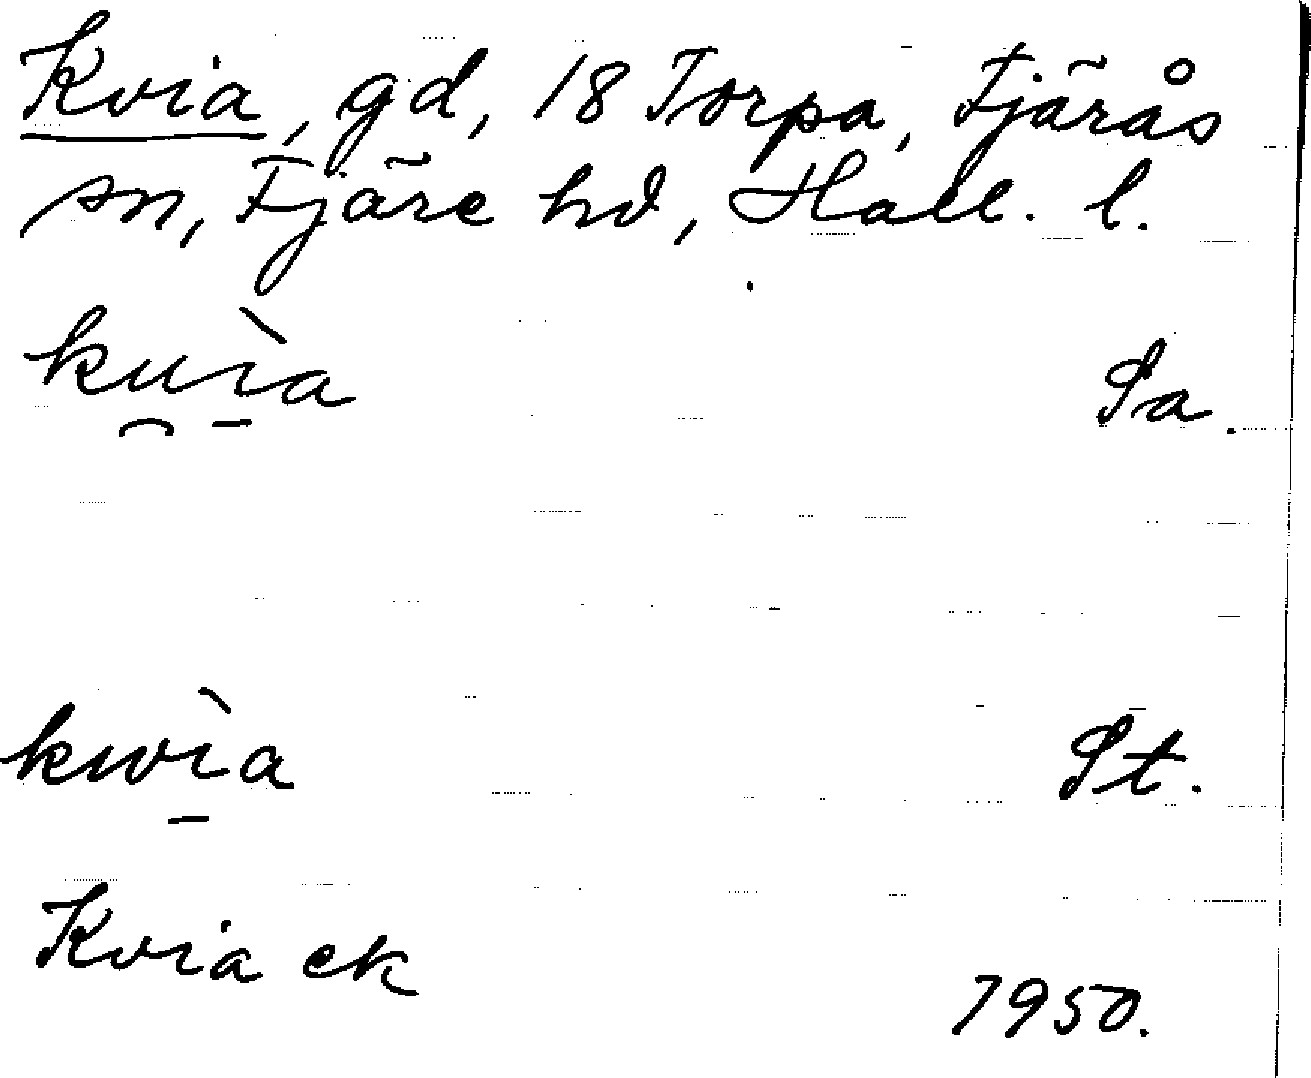 Kvia, gd, 18 Torpa, Fjärås
sn, Fjäre hd, Hall. l.
ku̯ì̱a Sa.
kwì̱a St.
Kvia ek 1950.